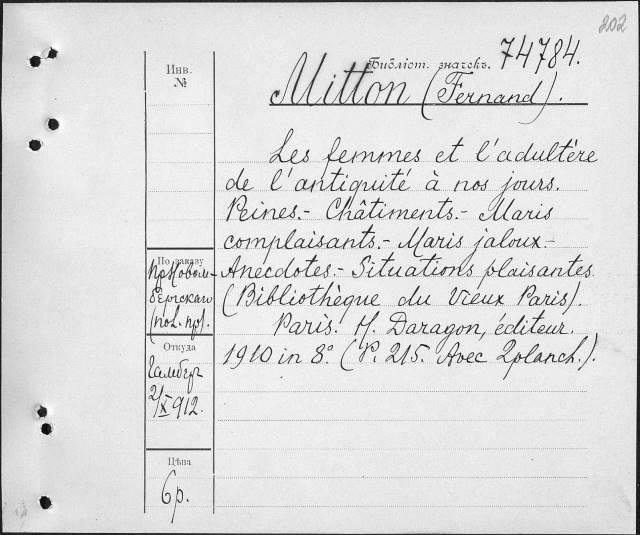 202
Библіот. значекъ. 74784.
Mitton (Fernand).
Инв.
№
Les femmes et l'adultère
de l'antiquité à nos jours.
Peines.- Châtiments.- Maris
complaisants.- Maris jaloux.-
Anecdotes.- Situations plaisantes
(Bibliothèque du Vieux Paris).
Paris. H. Daragon, éditeur.
1910 in 8° (P. 215. Avec 2 planch.).
По заказу
Откуда
2/X 912.
Цѣна
6 р.